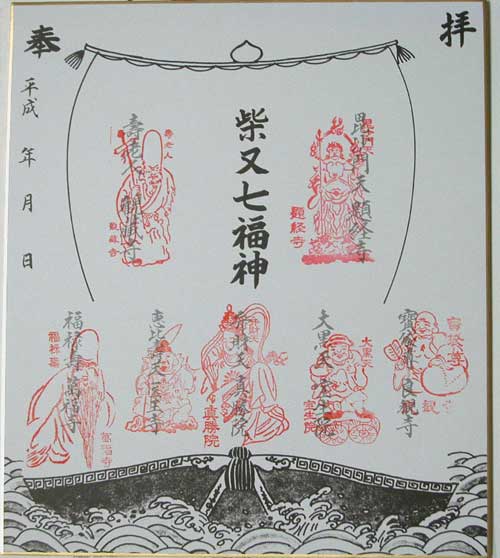 拝
奉
平成 年 月 日
柴又七福神
毘沙門天 題経寺
題経寺
壽老人 観蔵寺
寿老人
観蔵寺
寶袋尊 良観寺
大黒天 宝生院
大黒天
宝生院
弁財天 真勝院
真勝院
恵比寿天 医王寺
福禄寿 萬福寺
福禄寿
萬福寺